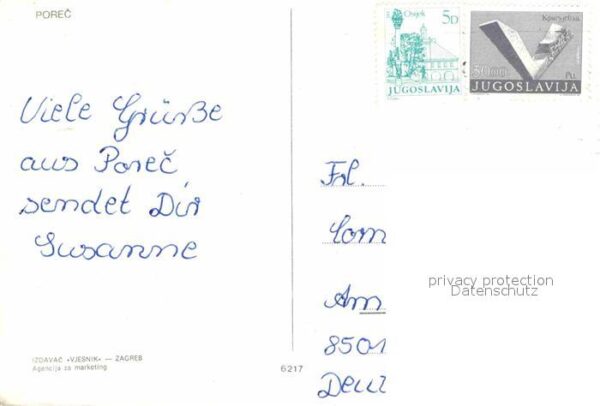 POREČ
Osijek
5D
JUGOSLAVIJA
Kragujevac
50
JUGOSLAVIJA
Viele Grüße
aus Poreč
sendet Dir
Susanne
Frl.
Corn
privacy protection
Datenschutz
Am
8501
IZDAVAČ «VJESNIK» — ZAGREB
Agencija za marketing
6217